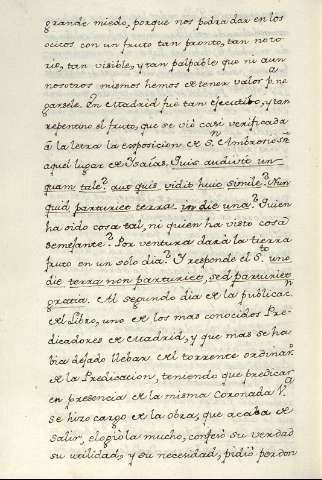 grande miedo, porque nos podra dar en los
ocicos con un fruto tan pronto, tan noto
rio, tan visible, y tan palpable que ni aun
nosotros mismos hemos de tener valor pª. ne
garsele. En Madrid fue tan ejecutibo, y tan
repentino el fruto, que se viò casi verificada
à la letra la exposicion de Sn. Ambrosio sre
aquel lugar de Isaias. Quis audivit un
quam tale? aut quis vidit huic simile? Nun
quid parturiet terra in die una? Quien
ha oido cosa tal, ni quien ha visto cosa
semejante? Por ventura darà la tierra
fruto en un solo dia? I responde el Sto. uno
die terra non parturiet, sed parturiet
gratia. Al segundo dia de la publicacn
del Libro, uno de los mas conocidos Pre-
dicadores de Madrid, y que mas se ha-
bia dejado llebar del torrente ordinaro.
de la Predicacion, teniendo que predicar
en presencia de la misma Coronada Vª.
se hizo cargo de la obra, que acaba de
salir, elogiola mucho, confesò su verdad
su utilidad, y su necesidad, pidiò perdon